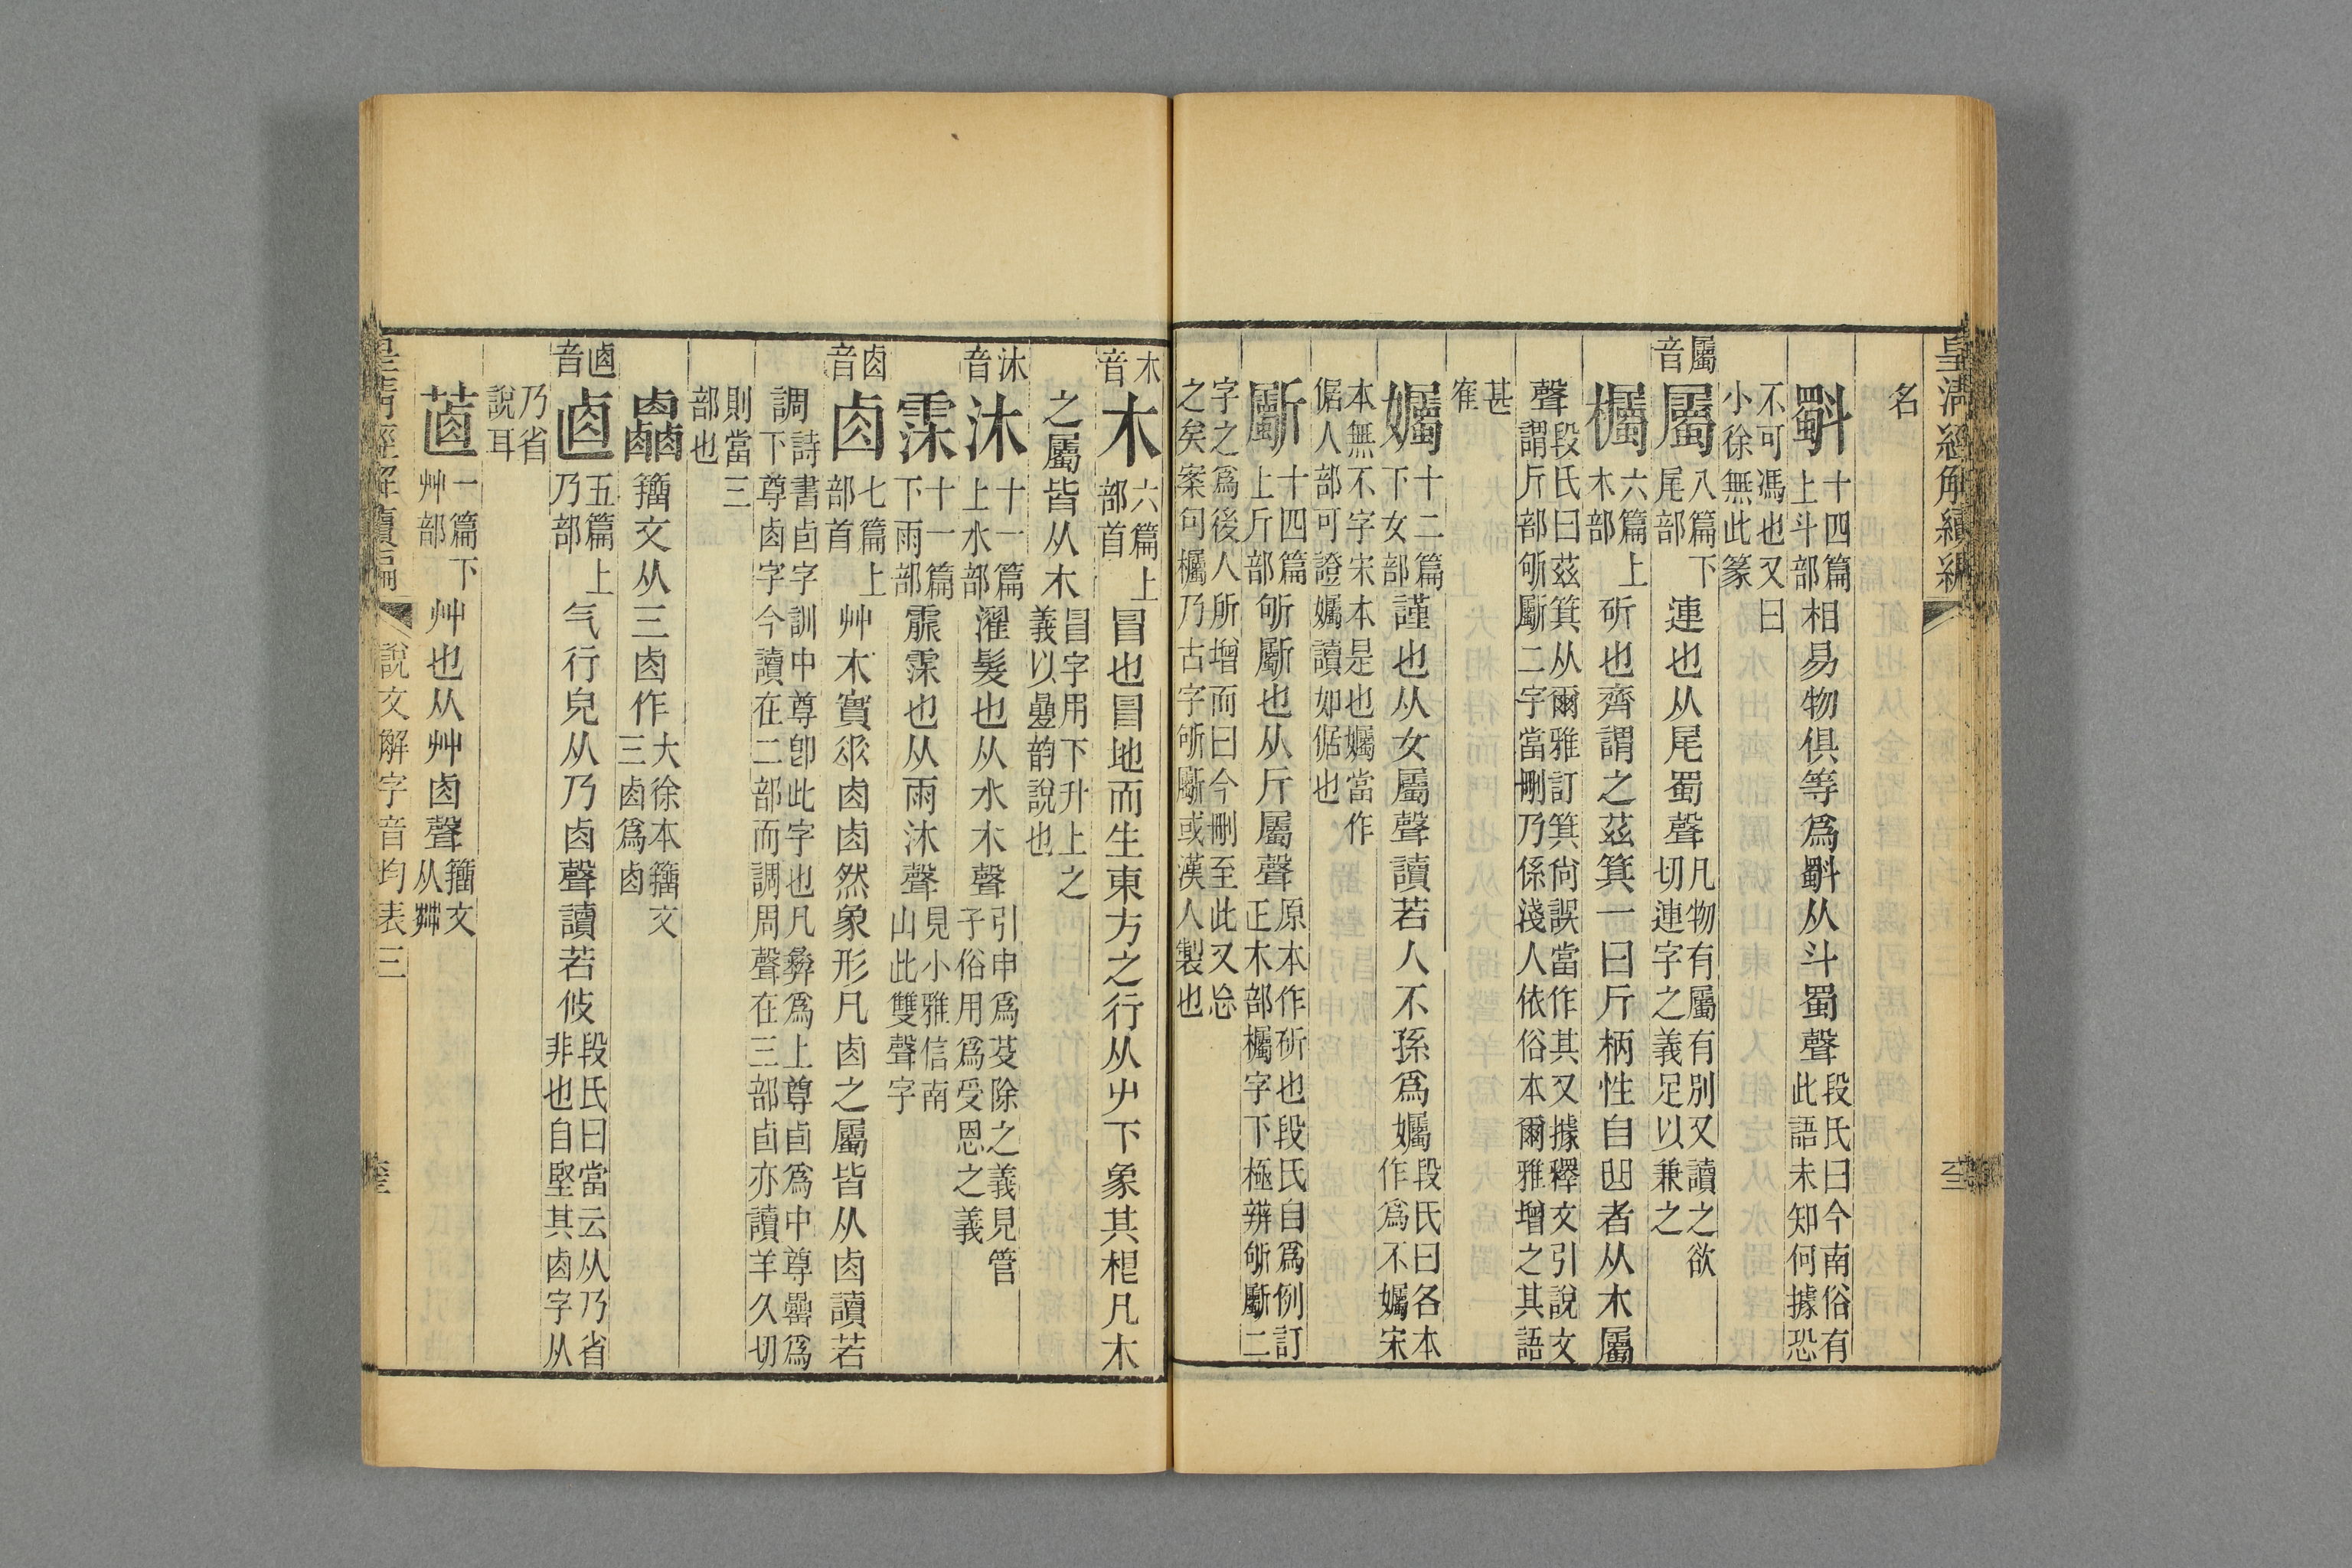 皇清經解續編
名
𣂏十四篇上斗部相易物俱等爲𣂏从斗蜀聲段氏曰今南俗有此語未知何據恐
不可馮也又曰小徐無此篆
屬音
屬八篇下尾部連也从尾蜀聲凡物有屬有別又讀之欲切連字之義足以兼之
欘六篇上木部斫也齊謂之茲箕一曰斤柄性自曲者从木屬
聲段氏曰茲箕从爾雅訂箕尙誤當作其又據釋文引說文謂斤部斪斸二字當刪乃係淺人依俗本爾雅增之其語
甚寉
孎十二篇下女部謹也从女屬聲讀若人不孫爲孎段氏曰各本作爲不孎宋
本無不字宋本是也孎當作倨人部可證孎讀如倨也
斸十四篇上斤部斪斸也从斤屬聲原本作斫也段氏自爲例訂正木部欘字下極辨斪斸二
字之爲後人所增而曰今刪至此又㤀之矣案句欘乃古字斪斸或漢人製也
木音
木六篇上部首冒也冒地而生東方之行从屮下象其柢凡木
之屬皆从木冒字用下升上之義以疊韵說也
沐音
沐十一篇上水部濯髮也从水木聲引申爲芟除之義見管子俗用爲受恩之義
霂十一篇下雨部霢霂也从雨沐聲見小雅信南山此雙聲字
卥音
卥七篇上部首艸木實𠂹卥卥然象形凡卥之屬皆从卥讀若
調詩書卣字訓中尊卽此字也凡彝爲上尊卣爲中尊罍爲下尊卥字今讀在二部而調周聲在三部卣亦讀羊久切
則當三部也
𠧪籒文从三卥作大徐本籒文三卥爲卥
𠧴音
𠧴五篇上乃部气行皃从乃卥聲讀若攸段氏曰當云从乃省非也自堅其卥字从
乃省說耳
䓘一篇下艸部艸也从艸卥聲籒文从茻
皇清經解續編
說文解字音均表三